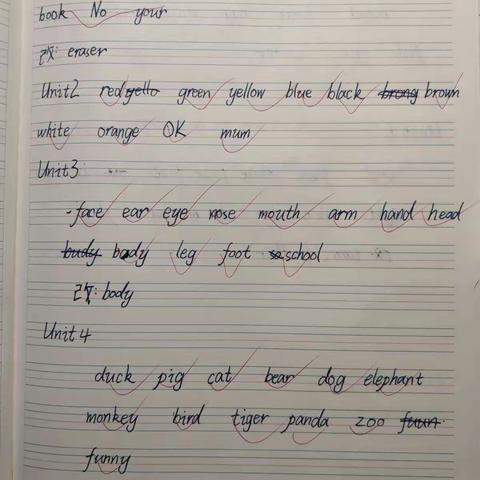 book No your
改: eraser
Unit2 red yello green yellow blue black brong brown
white orange OK mum
Unit3
face ear eye nose mouth arm hand head
budy body leg foot so school
改: body
Unit 4
duck pig cat bear dog elephant
monkey bird tiger panda zoo fuun
funny